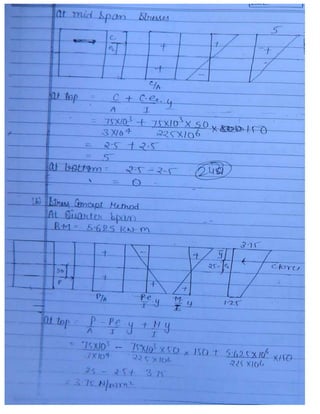 At mid Span Stresses
C
+
+
-
5
+
-
C/A
at top = C/A + C e₁/I . y
= 75×10³/3×10⁴ + 75×10³×50/225×10⁶ × 150
= 2.5 + 2.5
= 5
at bottom = 2.5 - 2.5
= 0
(b) Stress Concept Method
At Quarter Span
BM = 5.625 kN-m
3.75
+
50
P
25
P/A
Pe/I y
M/I y
1.25
at top = P/A - Pe/I y + M/I y
= 75×10³/3×10⁴ - 75×10³×50/225×10⁶ × 150 + 5.625×10⁶/225×10⁶ ×150
25 - 2.5 + 3.75
= 3.75 N/mm²